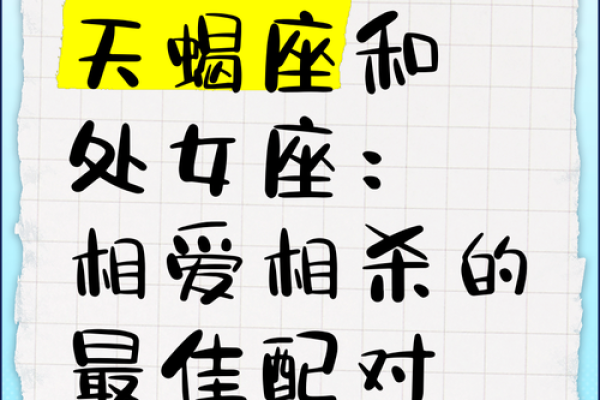 天蝎座和
处女座：
相爱相杀的
最佳配对